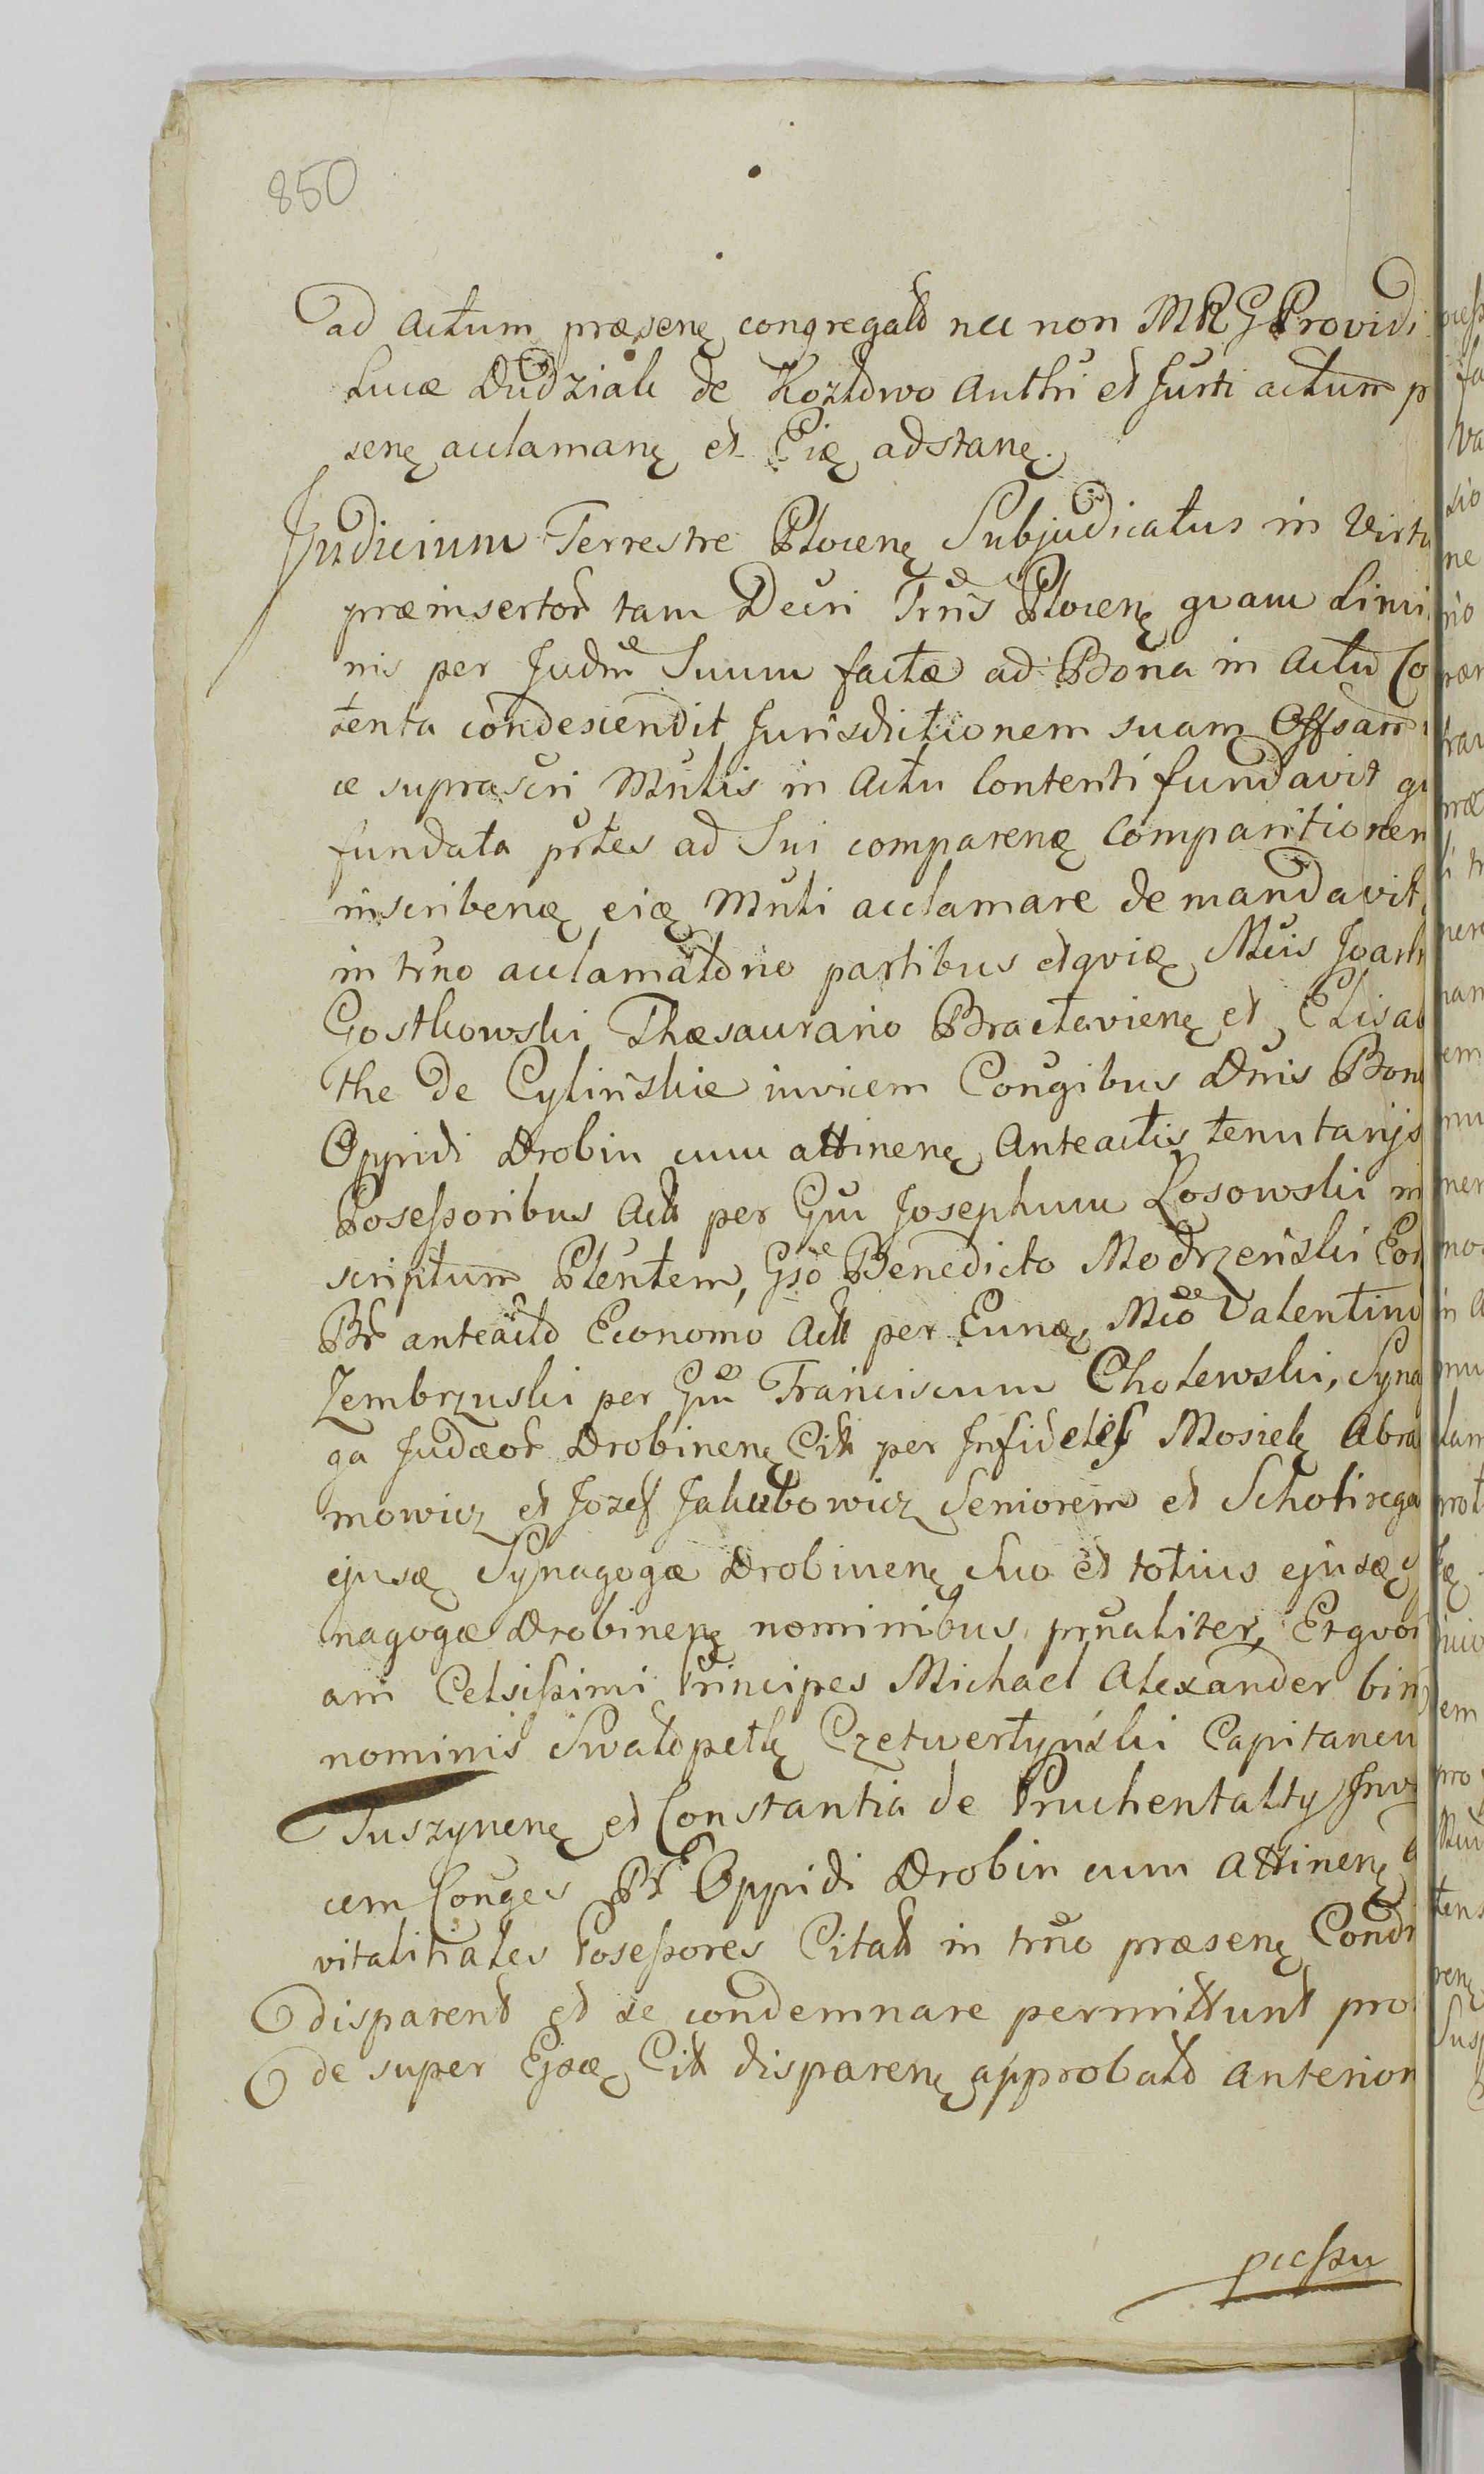 850
ad Actum præsenę congregato nec non MRG Providi
Lucæ Dudziak de Kozłowo Authri et Jurti actum p
senę acclamanę et Eię adstanę.
Judicium Terrestre Plocenę Subjudicatus in Virtu
præinsertor tam Decri Trnis Plocenę quam Limi
nis per Judm Suum factæ ad Bona in Actu Co
tenta condescendit Jurisdictionem suam Offsam
ce suprascri Mnlis in Actu Contenti fundavit qu
fundata prtes ad Sui comparenę Comparitionem
inscribenę eię Mnli acclamare demandavit
in trno acclamato no partibus etquię Mcis Joach
Gostkowski Thæsaurario Bractavienę et Elisab
the de Cylińskie invicem Conqibus Dnis Bon
Oppidi Drobin cum attinenę Anteactis tenutarijs
Poseßoribus Act per Gm Josephum Losowski in
scriptum Plentem, Gso Benedicto Modrzeński Eor
Br anteacto Economo Act per Eunę Mco Valentino
Zembrzuski per Gm Franciscum Cholewski, Syna
ga Judæor Drobinenę Cit per Infideles Mosiek Abra
mowicz et Jozef Jakubowicz Seniorem et Scholirega
ejusę Synagogæ Drobinenę suo et totius ejusę y
nagogæ Drobinenę nominibus prnaliter, Etquon
am Celsißimi Principes Michael Alexander bin
nominis Swatopełk Czetwertyński Capitaneu
Tuszynenę et Constantia de Pruchentalty Inv
cem Conges Br Oppidi Drobin cum Attinenę
vitalitiales Poseßores Citat in trno præsenę Cond
disparent et se condemnare permittunt pro
de super Ejsę Cit disparenę approbato anterior
pceßu